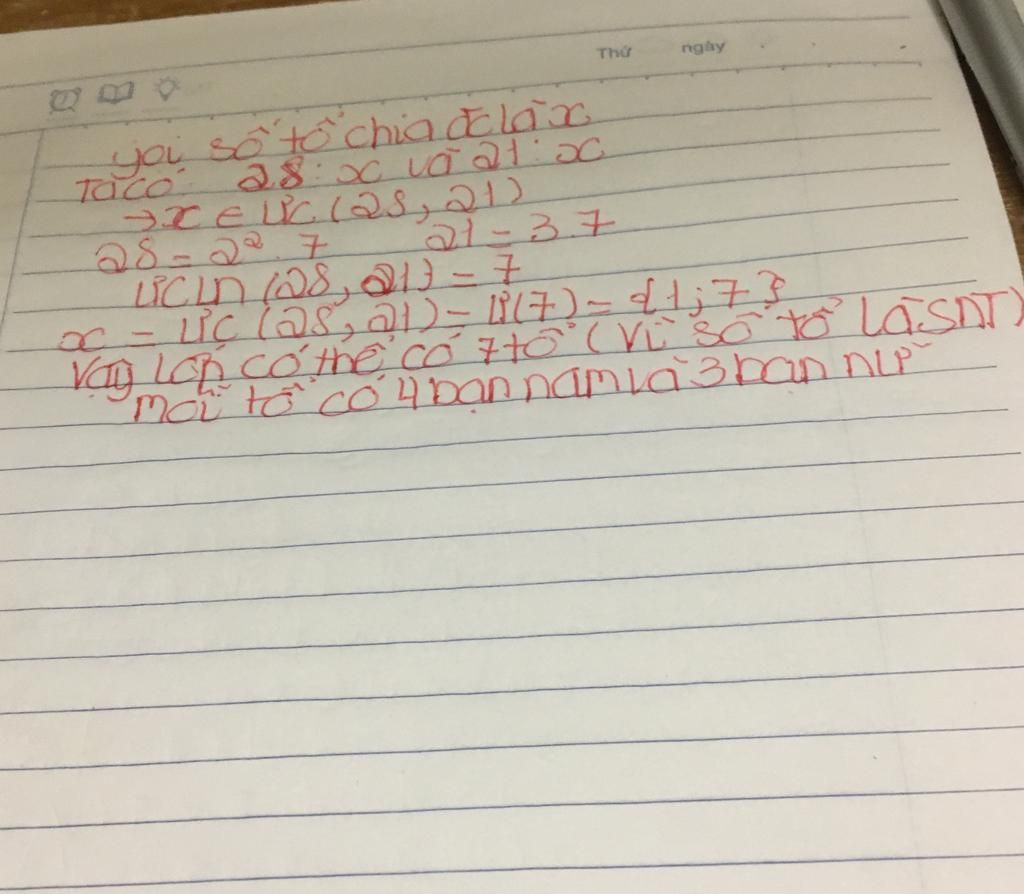 Thứ ngày
gọi số tổ chia đc là x
Ta có: 28 ⋮ x và 21 ⋮ x
→ x ∈ ƯC (28, 21)
28 = 2². 7 21 = 3.7
ƯCLN (28, 21) = 7
x = ƯC (28, 21) = Ư(7) = {1; 7}
Vậy lớp có thể có 7 tổ (Vì số tổ là SNT)
mỗi tổ có 4 bạn nam và 3 bạn nữ